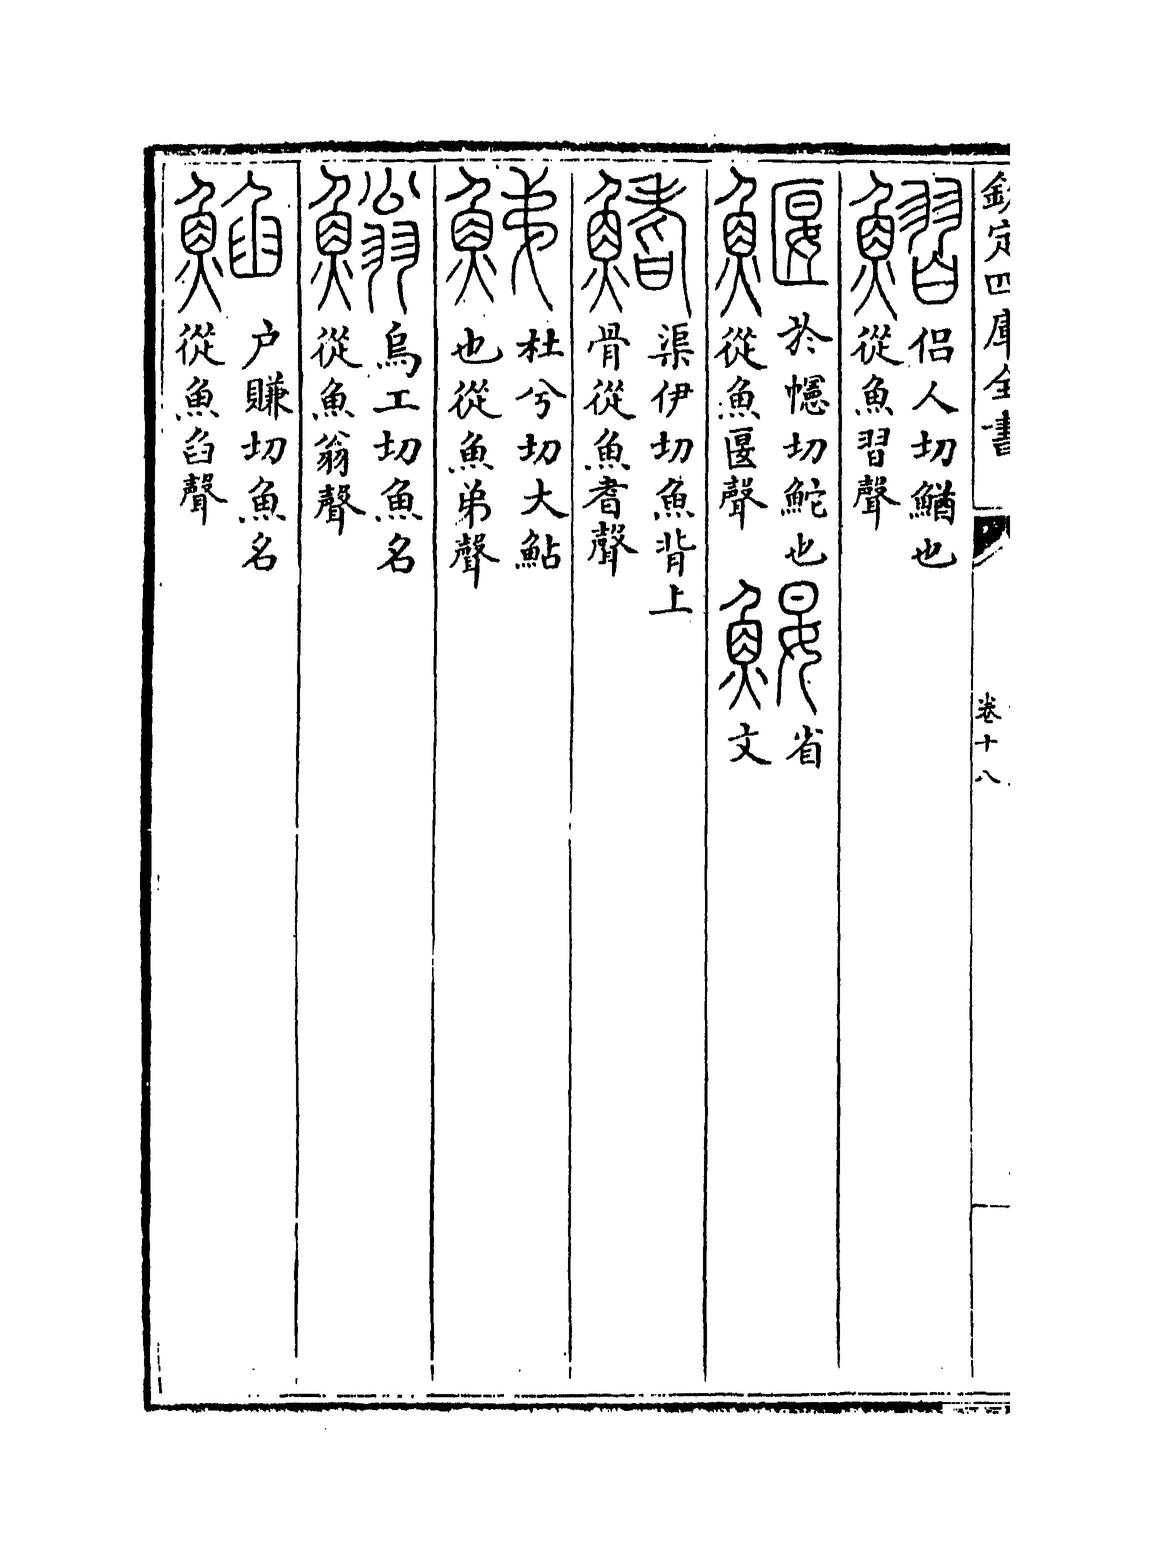 欽定四庫全書
卷十八
鰼侣人切鰌也
從魚習聲
鰋於幰切鮀也
從魚匽聲
鰋省
文
鰭渠伊切魚背上
骨從魚耆聲
鮷杜兮切大鮎
也從魚弟聲
鶲烏工切魚名
從魚翁聲
䱤户賺切魚名
從魚臽聲